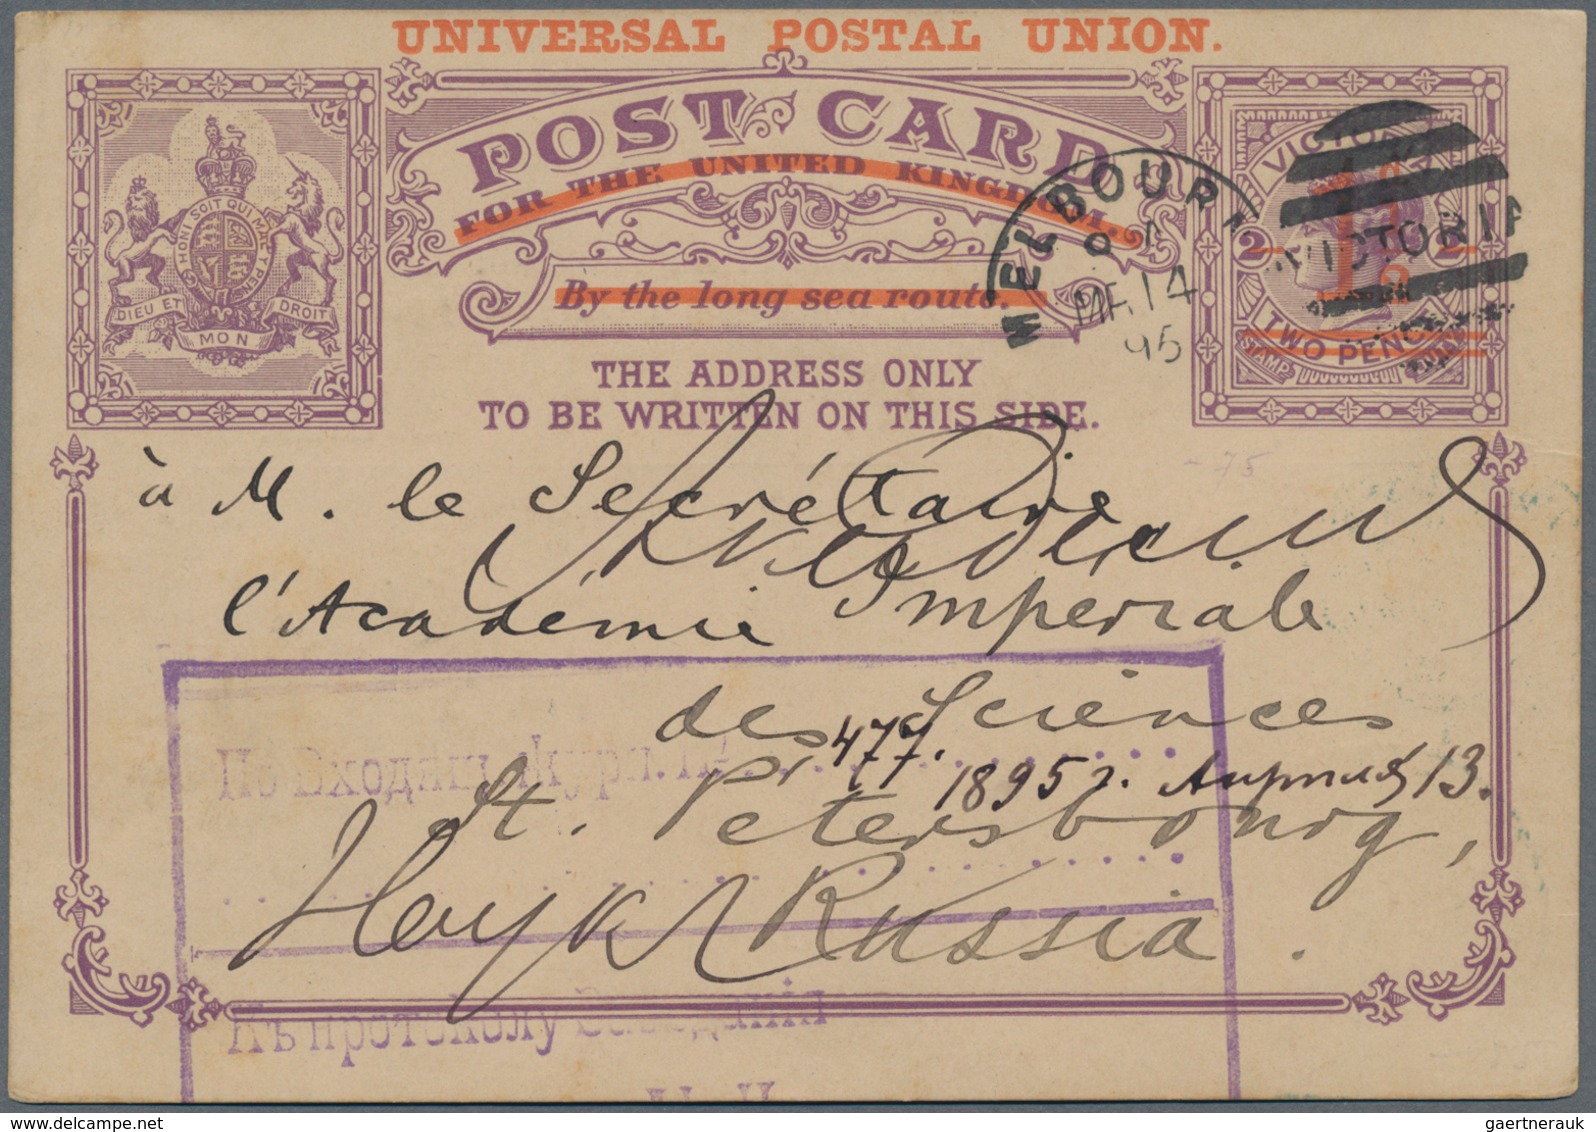 UNIVERSAL POSTAL UNION.
POST CARD
FOR THE UNITED KINGDOM.
By the long sea route.
THE ADDRESS ONLY
TO BE WRITTEN ON THIS SIDE.
HONI SOIT QUI MAL Y PENSE
DIEU ET MON DROIT
MELBOURN
MR 14
95
VICTORIA
VICTORIA
2 2
TWO PENCE
STAMP
- 75
à M. le Secrétaire
l'Académie Impériale
des Sciences
477.
1895 г. Апреля 13.
St. Pétersbourg,
Russia.
По Входящ. журн. №
Къ протоколу Засѣданія
delcampe.net
gaertnerauk